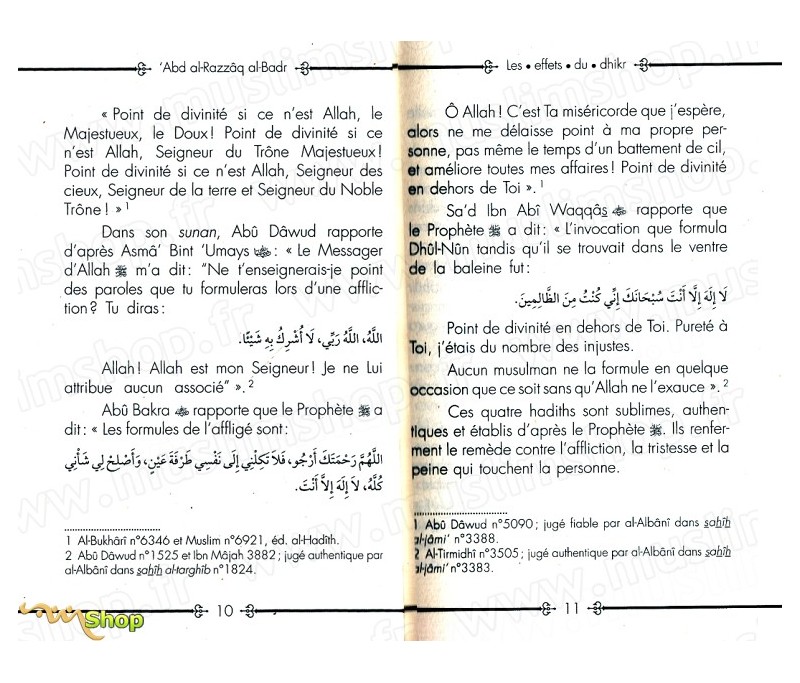 'Abd al-Razzâq al-Badr
« Point de divinité si ce n'est Allah, le
Majestueux, le Doux! Point de divinité si ce
n'est Allah, Seigneur du Trône Majestueux!
Point de divinité si ce n'est Allah, Seigneur des
cieux, Seigneur de la terre et Seigneur du Noble
Trône! »1
Dans son sunan, Abû Dâwud rapporte
d'après Asmâ' Bint 'Umays : « Le Messager
d'Allah ﷺ m'a dit: "Ne t'enseignerais-je point
des paroles que tu formuleras lors d'une afflic-
tion? Tu diras:
اللَّهُ، اللَّهُ رَبِّي، لَا أُشْرِكُ بِهِ شَيْئًا.
Allah! Allah est mon Seigneur! Je ne Lui
attribue aucun associé" ».2
Abû Bakra rapporte que le Prophète ﷺ a
dit: « Les formules de l'affligé sont:
اللَّهُمَّ رَحْمَتَكَ أَرْجُو، فَلَا تَكِلْنِي إِلَى نَفْسِي طَرْفَةَ عَيْنٍ، وَأَصْلِحْ لِي شَأْنِي
كُلَّهُ، لَا إِلَهَ إِلَّا أَنْتَ.
1 Al-Bukhârî n°6346 et Muslim n°6921, éd. al-Hadîth.
2 Abû Dâwud n°1525 et Ibn Mâjah 3882; jugé authentique par
al-Albânî dans sahîh al-targhîb n°1824.
10
Les • effets • du • dhikr
Ô Allah! C'est Ta miséricorde que j'espère,
alors ne me délaisse point à ma propre per-
sonne, pas même le temps d'un battement de cil,
et améliore toutes mes affaires! Point de divinité
en dehors de Toi ».1
Sa'd Ibn Abî Waqqâs rapporte que
le Prophète ﷺ a dit: « L'invocation que formula
Dhûl-Nûn tandis qu'il se trouvait dans le ventre
de la baleine fut:
لَا إِلَهَ إِلَّا أَنْتَ سُبْحَانَكَ إِنِّي كُنْتُ مِنَ الظَّالِمِينَ.
Point de divinité en dehors de Toi. Pureté à
Toi, j'étais du nombre des injustes.
Aucun musulman ne la formule en quelque
occasion que ce soit sans qu'Allah ne l'exauce ».2
Ces quatre hadiths sont sublimes, authen-
tiques et établis d'après le Prophète ﷺ. Ils renfer-
ment le remède contre l'affliction, la tristesse et la
peine qui touchent la personne.
1 Abû Dâwud n°5090; jugé fiable par al-Albânî dans sahîh
al-jâmi' n°3388.
2 Al-Tirmidhî n°3505; jugé authentique par al-Albânî dans sahîh
al-jâmi' n°3383.
11
Shop